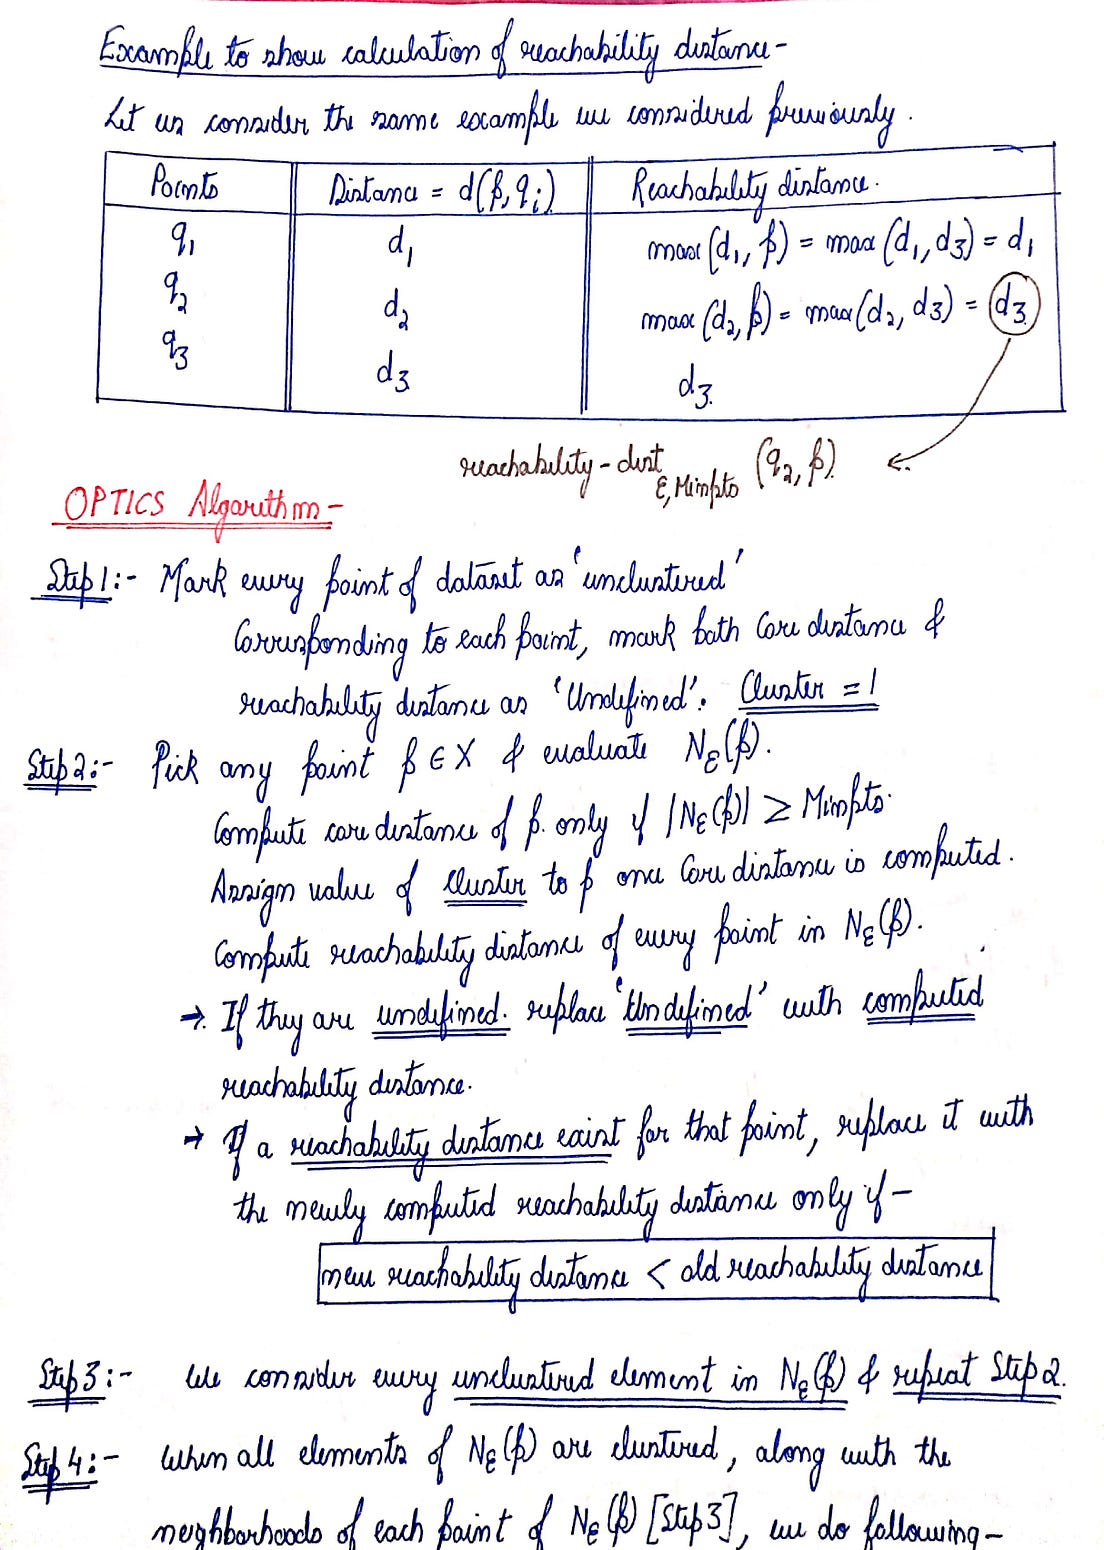 Example to show calculation of reachability distance-
Let us consider the same example we considered previously.
Points Distance = d(p, qi) Reachability distance.
q1 d1 max(d1, p) = max(d1, d3) = d1
q2 d2 max(d2, p) = max(d2, d3) = d3
q3 d3 d3.
reachability-dist ε, Minpts (q2, p)
OPTICS Algorithm-
Step 1:- Mark every point of dataset as 'unclustered'
Corresponding to each point, mark both Core distance &
reachability distance as 'Undefined'. Cluster = 1
Step 2:- Pick any point p ∈ X & evaluate Nε(p).
Compute core distance of p. only if |Nε(p)| ≥ Minpts.
Assign value of Cluster to p once Core distance is computed.
Compute reachability distance of every point in Nε(p).
→ If they are undefined. replace 'Undefined' with computed
reachability distance.
→ If a reachability distance exist for that point, replace it with
the newly computed reachability distance only if -
new reachability distance < old reachability distance
Step 3:- We consider every unclustered element in Nε(p) & repeat Step 2.
Step 4:- When all elements of Nε(p) are clustered, along with the
neighborhoods of each point of Nε(p) [Step 3], we do following-